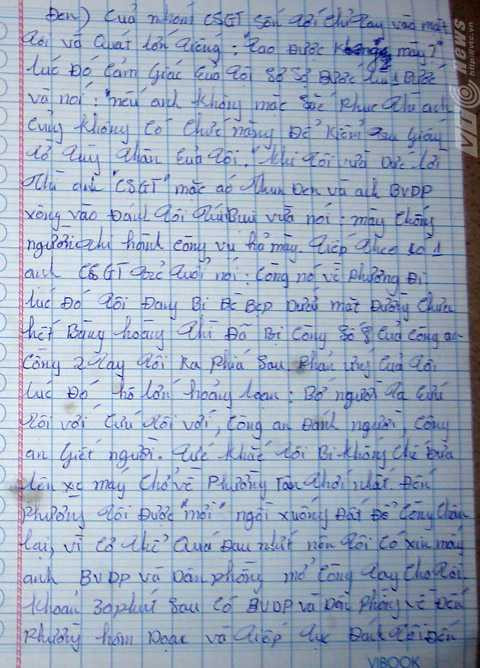 Đen) Của nhóm CSGT Sấn tới chỉ tay vào mặt
tôi và quát lớn tiếng: "tao Được không mày?"
lúc Đó cảm giác của tôi sợ sợ Được lùi 1 Bước
và nói: "nếu anh không mặc sắc phục thì anh
cũng không có chức năng Để kiểm tra giấy
tờ tùy thân của tôi." khi tôi vừa dứt lời
thì anh "CSGT" mặc áo thun Đen và anh BVDP
xông vào Đánh tôi túi Bụi vừa nói: mày chống
người thi hành công vụ hả mày. tiếp theo có 1
anh CSGT trẻ tuổi nói: Còng nó về phường Đi
lúc Đó tôi Đang Bị Đè Bẹp Dưới mặt Đường chưa
hết Bàng hoàng thì Đã Bị Còng số 8 của công an
Còng 2 tay tôi ra phía sau. Phản ứng của tôi
lúc Đó hô lớn hoảng loạn: Bớ người ta Cứu
tôi với Cứu tôi với, Công an Đánh người, Công
an Giết người. tức khắc tôi Bị khống chế Đưa
lên xe máy chở về Phường Tân Thới Nhất. Đến
phường tôi Được "mời" ngồi xuống Đất Để Còng chân
lại, vì cơ thể Quá Đau nhứt nên tôi có xin mấy
anh BVDP và Dân phòng mở Còng tay cho tôi.
Khoản 30 phút sau Có BVDP và Dân phòng về Đến
Phường hăm Dọa và tiếp tục Đánh tôi Đến
VIBOOK
VTC news
http://vtc.vn